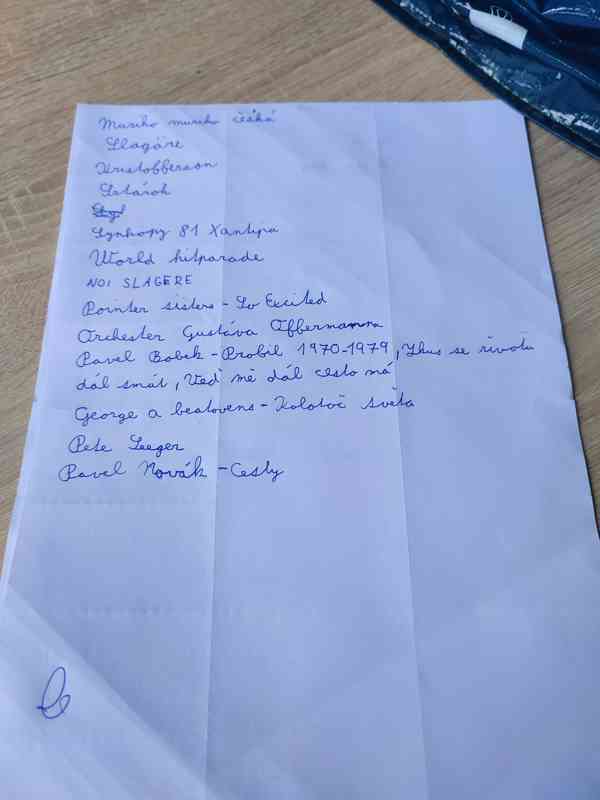 Musiko musiko česká
Slagére
Kristofferson
Satárok
Synkopy 81 Xantipa
World hitparade
NOI SLAGERE
Pointer sisters - So Excited
Orchester Gustáva Offermanna
Pavel Bobek - Profil 1970-1979, Zkus se životu
dál smát, Veď mě dál cesto má
George a beatovens - Kolotoč světa
Pete Seeger
Pavel Novák - Cesty